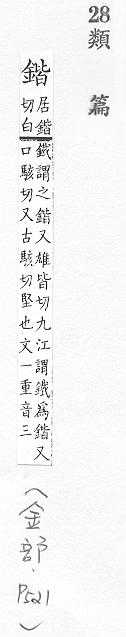 28 類篇
鍇
居鍇鐵謂之鍇又雄皆切九江謂鐵爲鍇又
切白口駭切又古駭切堅也文一重音三
(金部．P521)